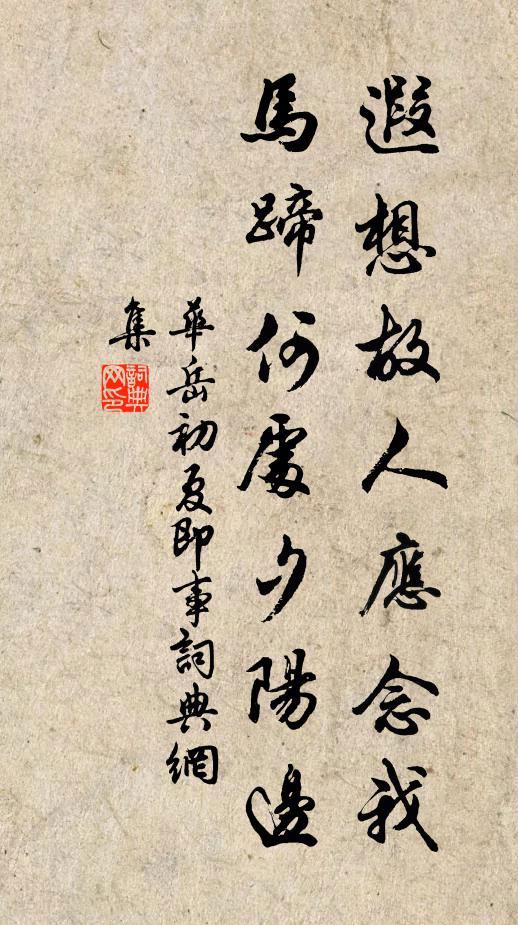 遐想故人應念我
馬蹄何處夕陽邊
華岳初夏即事詞典網
集
詞典
网印